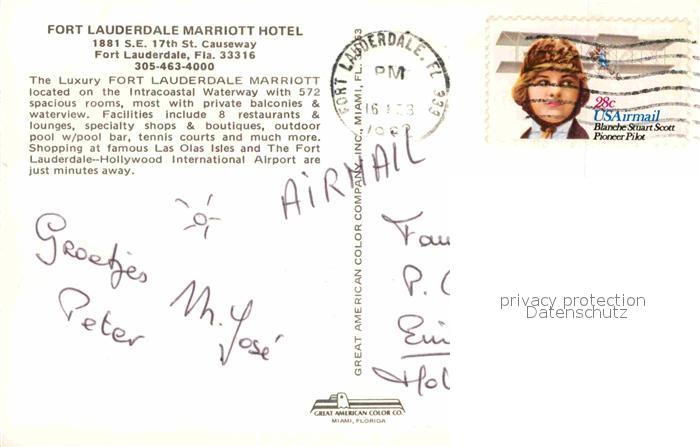 FORT LAUDERDALE MARRIOTT HOTEL
1881 S.E. 17th St. Causeway
Fort Lauderdale, Fla. 33316
305-463-4000
The Luxury FORT LAUDERDALE MARRIOTT
located on the Intracoastal Waterway with 572
spacious rooms, most with private balconies &
waterview. Facilities include 8 restaurants &
lounges, specialty shops & boutiques, outdoor
pool w/pool bar, tennis courts and much more.
Shopping at famous Las Olas Isles and The Fort
Lauderdale--Hollywood International Airport are
just minutes away.
AiRMAIL
Groetjes
Peter M. José
GREAT AMERICAN COLOR COMPANY, INC., MIAMI, FL.
FORT LAUDERDALE, FL 333
PM
16
28c
USAirmail
Blanche Stuart Scott
Pioneer Pilot
P.
Hol
privacy protection
Datenschutz
GREAT AMERICAN COLOR CO.
MIAMI, FLORIDA